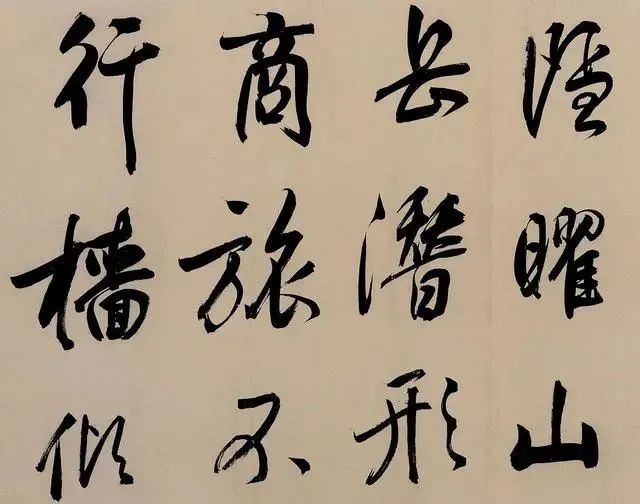 隱曜山
岳潛形
商旅不
行檣傾